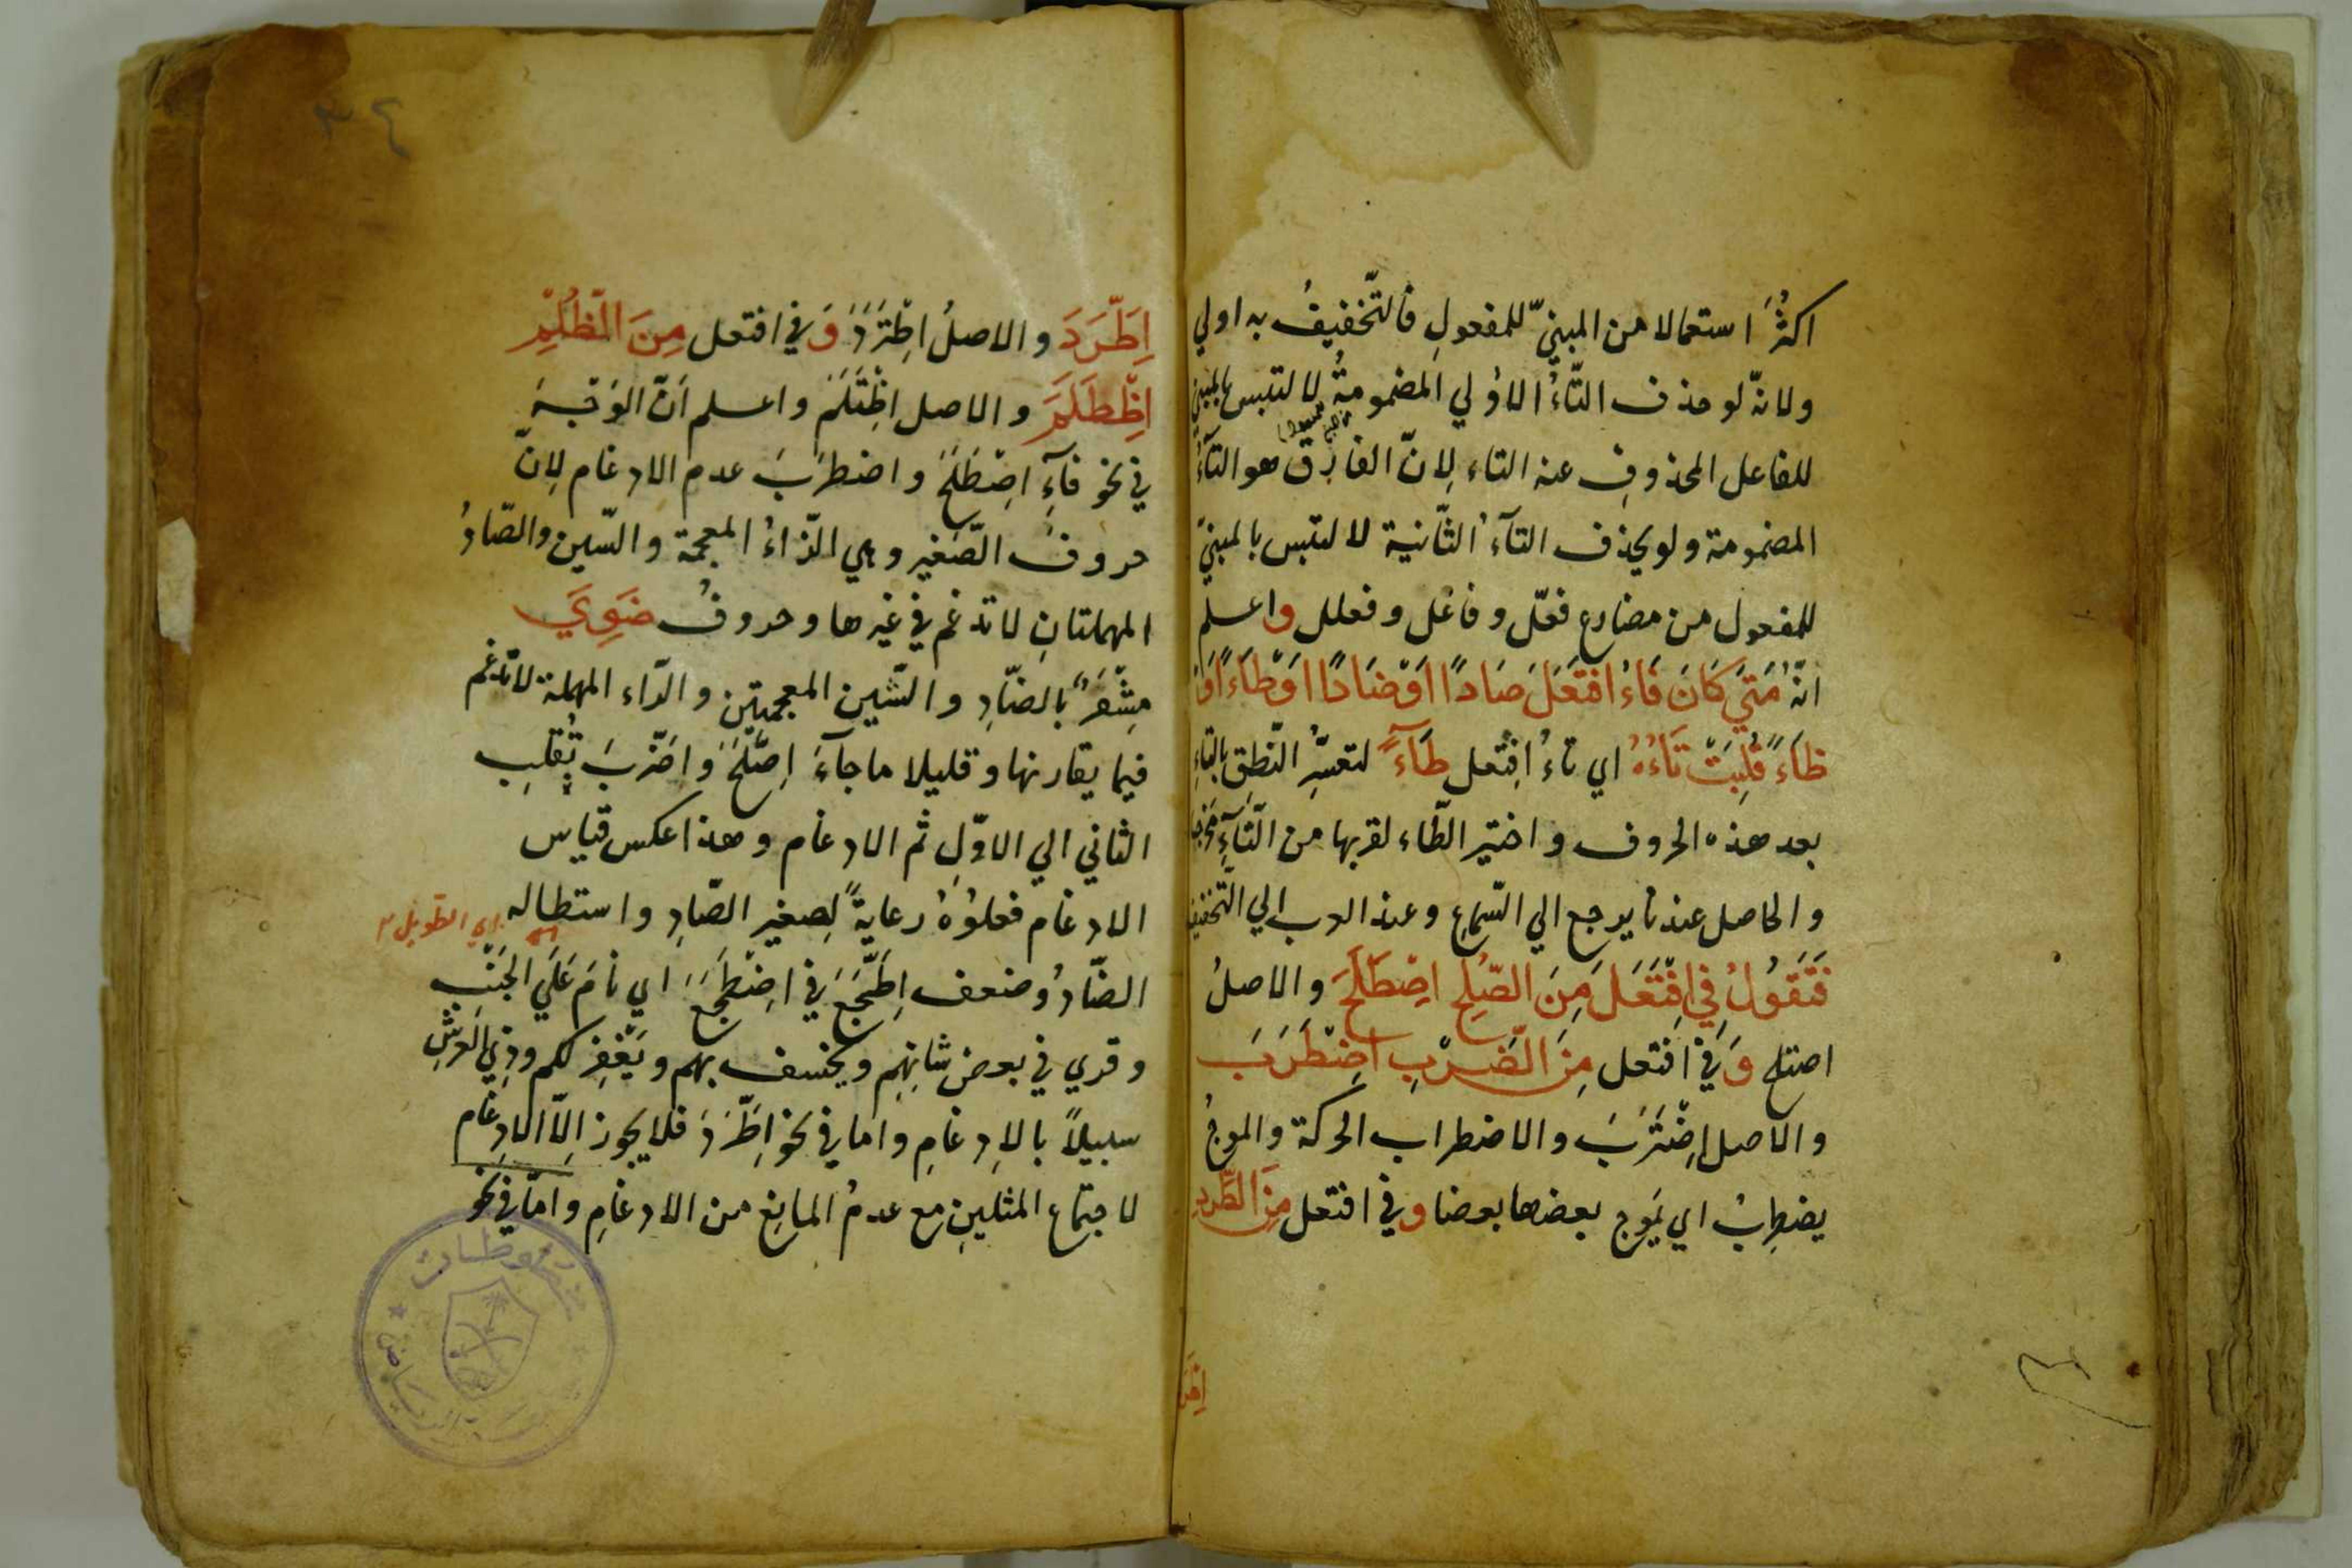 اكثُر استعمالا من المبنيّ للمفعولِ فالتّخفيفُ به اولي
ولانّه لو حذف التّاءُ الاوُلي المضمومةُ لا لتبس بالمبني
للفاعل المحذوفِ عنه التاء لِانّ الفارق هو التآءُ
المضمومة ولو يحذف التآءُ الثّانية لا لتبس بالمبنيّ
للمفعول من مضارع فعّل و فاعَل و فعلل واعلم
انّهُ مَتَي كَانَ فَاءُ افتَعَلَ صَادًا اَوْ ضَادًا اَوْ طَاءً اَوْ
ظَاءً قُلِبَتْ تَاءُهُ اي تاءُ اِفتعل طَآءً لتعسّرِ النّطقِ بالتاءِ
بعد هذه الحروف و اختير الطّاء لقربها من التّآءِ مخرجا
و الحاصل عندنا يرجع الي السّماعِ وعند العرب الي التّخفيف
فَتَقُولُ فِي اِفْتَعَلَ مِنَ الصّلحِ اِصْطَلَحَ والاصلُ
اصتلح وَفي افتعل مِنَ الضَربِ اضْطَرَبَ
و الاصل اِضْتَرَبَ و الاضطراب الحركة والموجُ
يضطربُ اي يَموج بعضها بعضا وفي افتعل مِنَ الطّردِ
اِطّرَ
٣٤
اِطّرَدَ والاصلُ اطْتَرَدَ وَفي افتعل مِنَ الظُلْمِ
اِظْطَلَمَ و الاصل اظْتَلَمَ واعلم اَنّ الوَجْهَ
في نحوِ فآءِ اصْطَلَحَ و اضطرَبَ عدم الادغام لِانّ
حروفَ الصّغير وهي الزّاءُ المعجمة و السّين والصّادُ
المهملتانِ لا تدغم في غيرها و حروفُ ضَوِيَ
مِشْفَرٌ بالضّادِ و الشّين المعجمتين و الرّاء المهملة لا تدغم
فيما يقاربها و قليلا ما جآءَ اِصّلَحَ وَاضّرَبَ بِقُلبِ
الثاني الي الاوّلِ ثم الادغام و هذا عكس قياس
الادغام فعلوُهُ رعايةً لِصغير الصّادِ و استطاله
اي الطويل
الضّادُ وضعف اِطّجَعَ في اضْطَجَعَ اي نامَ عَلَي الجَنْبِ
و قري في بعض شانهِم ويخسف بهم و يَغْفِر لكم وذِي العَرشِ
سبيلاً بالاِدغامِ و اما في نحو اطّرَدَ فلا يجوز اِلّا الادِغام
لا جتماع المثلينِ مع عدمُ المانِع من الادغامِ وامّا في نحو
مخطوطات
الرياض